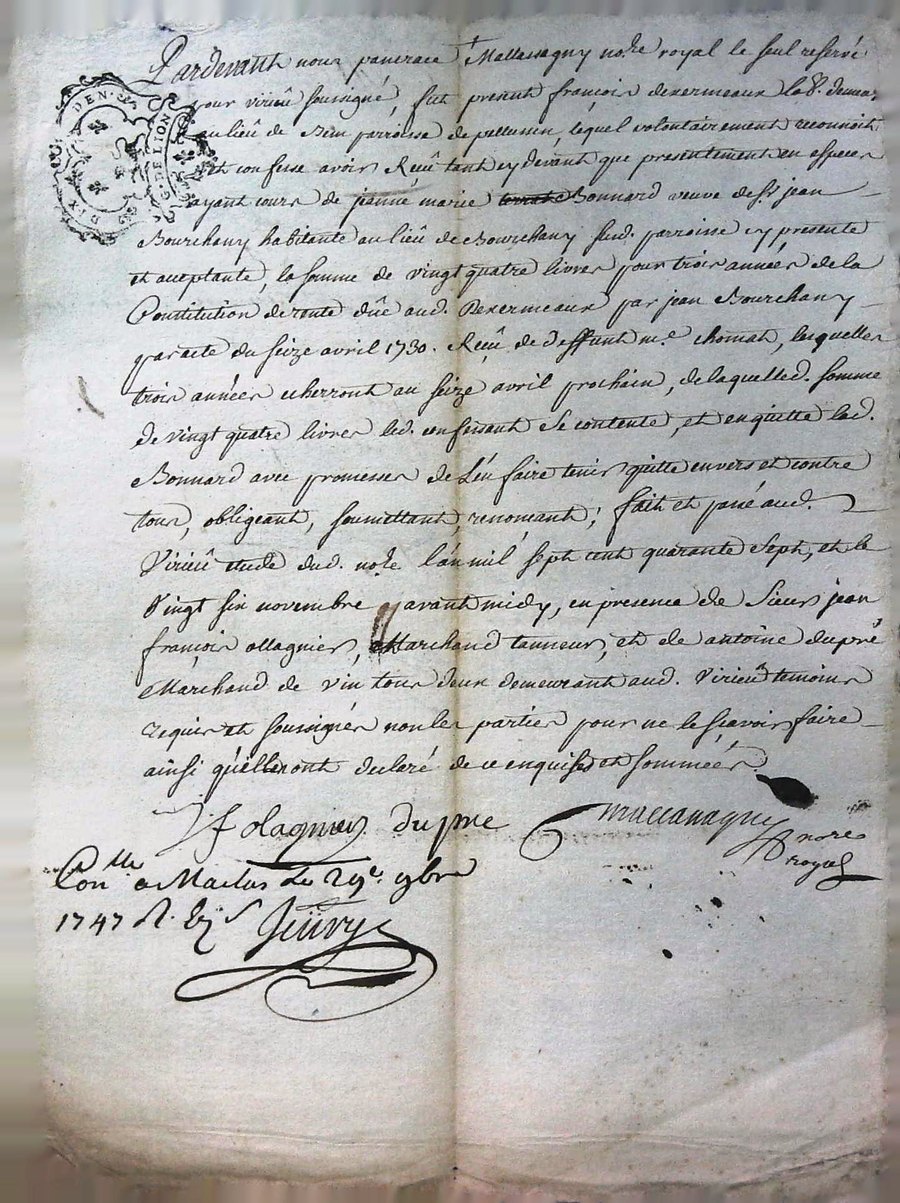 Pardevant nous pancrace Mallassagny no.re royal le seul reservé
pour virieu soussigné, fut present françois dexermeaux lab.r demeu.t
au lieu de parroisse de pellussin, lequel volontairement reconnoit
et confesse avoir Reçeu tant cy devant que presentement en especes
ayant cours de jeanne marie Bonnard veuve de s.r jean
Bourchany habitante au lieu de Bourchany sud. parroisse cy presente
et acceptante, la somme de vingt quatre livres pour trois années de la
Constitution de rente düe aud. Dexermeaux par jean Bourchany
par acte du seize avril 1730. Reçeu de deffunt m.e chomat, lesquelles
trois années echerront au seize avril prochain, de laquelled. somme
de vingt quatre livres led. confessant se contente, et en quitte lad.
Bonnard avec promesses de l'en faire tenir quitte envers et contre
tous, obligeant, soumettant, renonçant; fait et passé aud.
Virieu etude dud. no.re l'an mil sept cent quarante sept, et le
Vingt six novembre avant midy, en presence de Sieur jean
françois ollagnier, Marchand tanneur, et de antoine dupré
Marchand de vin tous deux demeurant aud. Virieu temoins
requis et soussignés non les parties pour ne le sçavoir faire
ainsi qu'elles ont declaré de ce enquises et sommées
DEN.
G. DE LION
DIX
J f olagnier dupre
Mallassagny
no.re
royal
Con.lle a Maclas Le 29.e 9bre
1747 R.